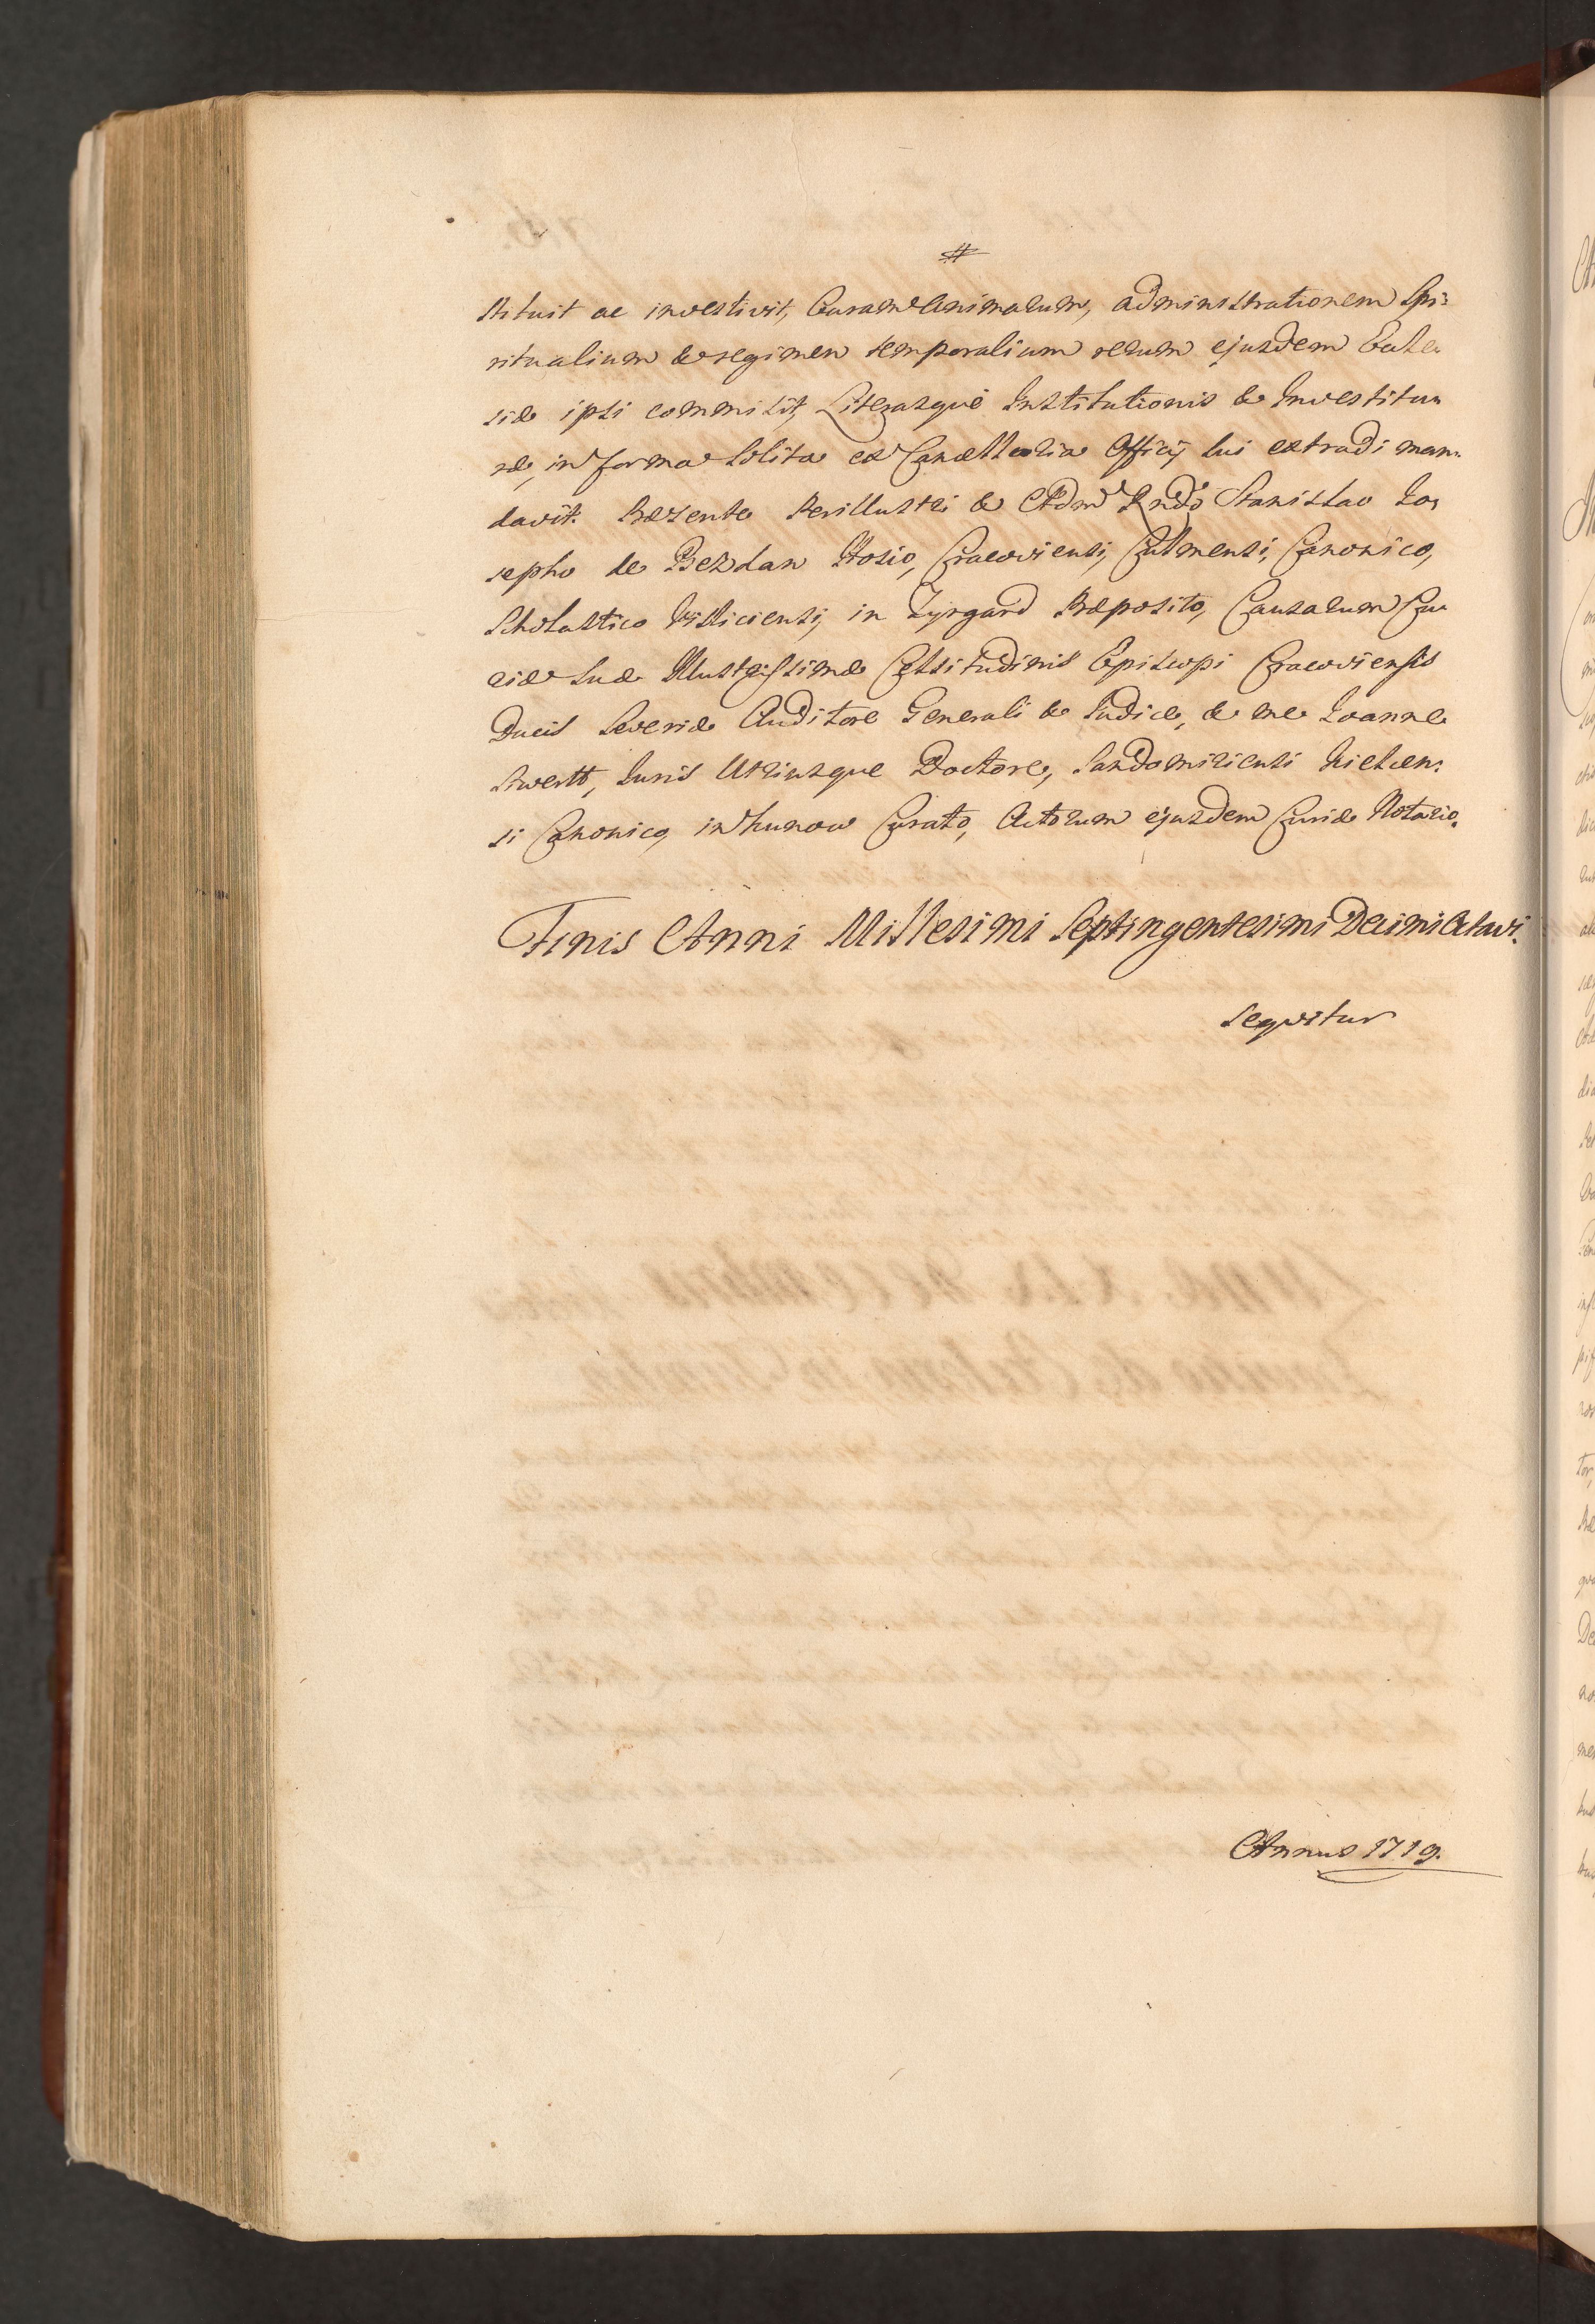 #
stituit ac investivit, Curam Animarum, administrationem Spi:
ritualium & regimen temporalium rerum ejusdem Eccle
siæ ipsi commisit, Literasque Institutionis & Investitu
ræ, in forma solita ex Cancellaria Officij sui extradi man:
davit. Præsente Perillustri & Adm Rndo Stanislao Io,
sepho de Bezdan Hosio, Cracoviensi, Culmensi, Canonico,
Scholastico Visliciensi, in Zyrgard Præposito, Causarum Cu
riæ Suæ Illustrissimæ Celsitudinis Episcopi Cracoviensis
Ducis Severiæ Auditore Generali & Iudice, & me Ioanne
Swertt, Iuris Utriusque Doctore, Sandomiriensi Kielcen:
si Canonico, in Kunow Curato, Actorum ejusdem Curiæ Notario.
Finis Anni Millesimi Septingentesimi Decimi Octavi.
Sequitur
Annus 1719.